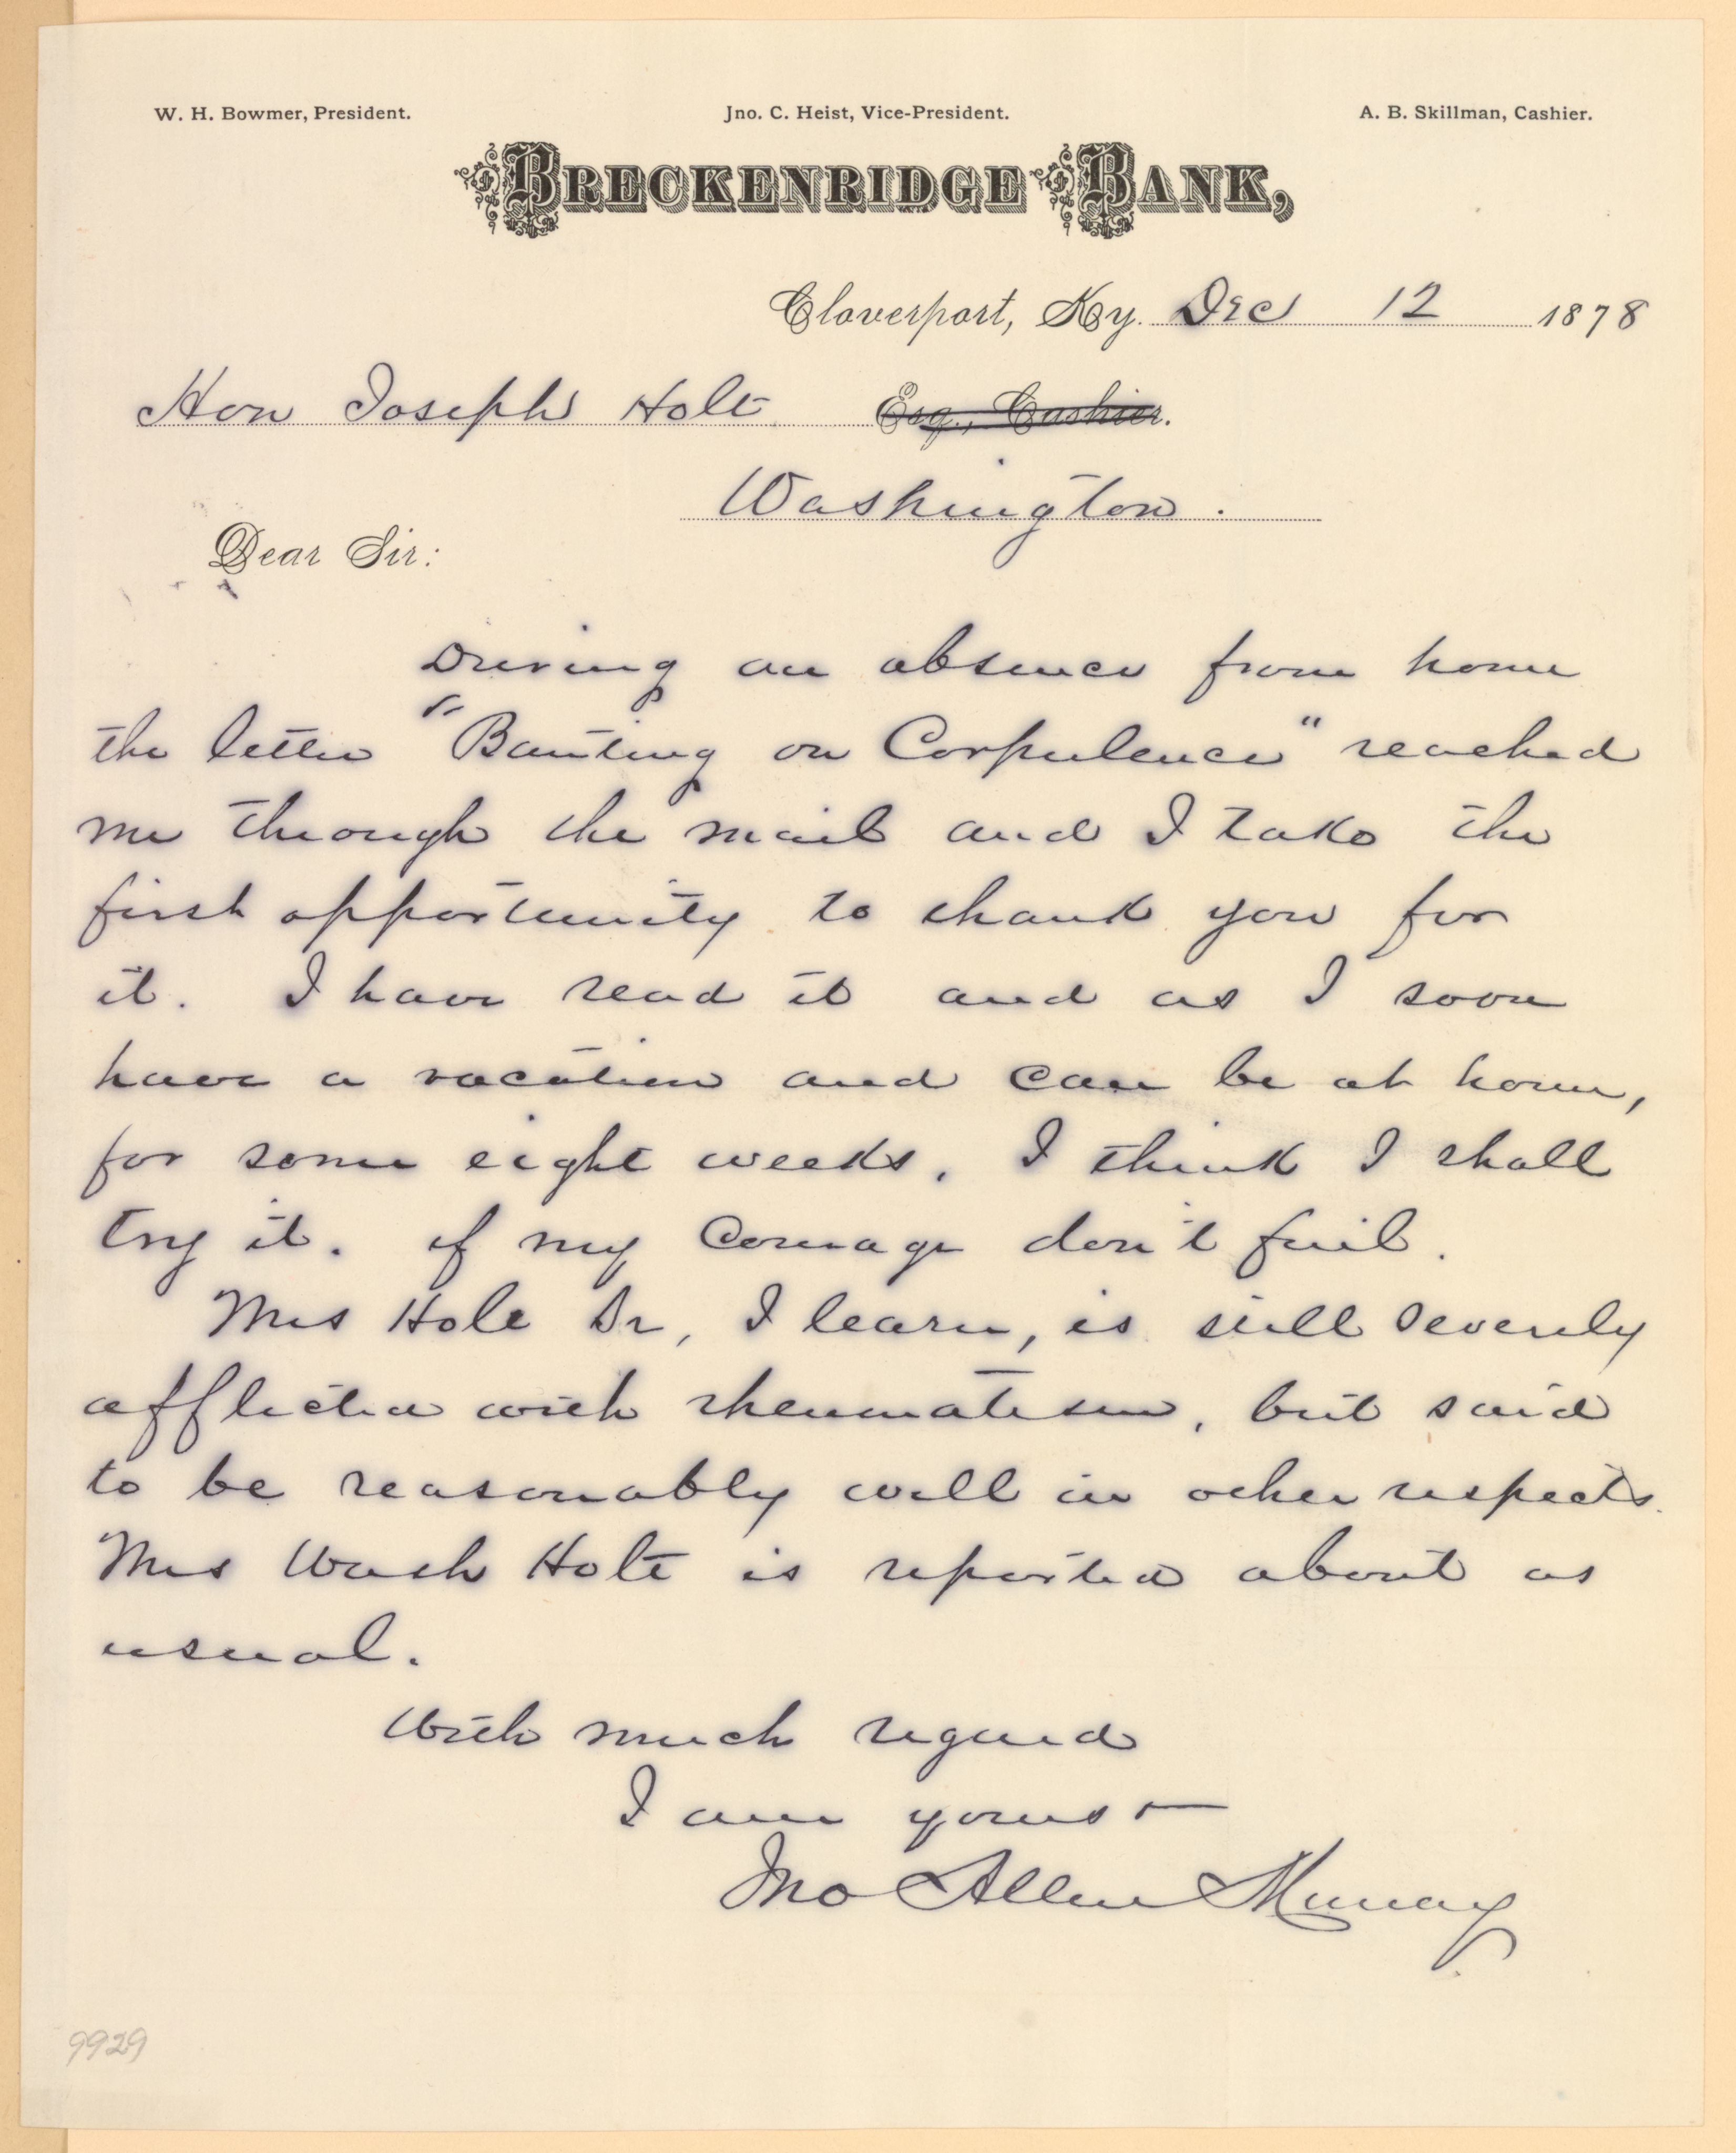 W. H. Bowmer, President. Jno. C. Heist, Vice-President. A. B. Skillman, Cashier.
BRECKENRIDGE BANK,
Cloverport, Ky. Dec 12 1878
Hon Joseph Holt Esq., Cashier.
Washington.
Dear Sir:
During an absence from home
the letter "Banting on Corpulence" reached
me through the mail and I take the
first opportunity to thank you for
it. I have read it and as I soon
have a vacation and can be at home,
for some eight weeks, I think I shall
try it. if my courage don't fail.
Mrs Holt Sr, I learn, is still severely
afflicted with rheumatism, but said
to be reasonably well in other respects.
Mrs Wash Holt is reported about as
usual.
With much regard
I am yours
Jno Allen Murray
9929